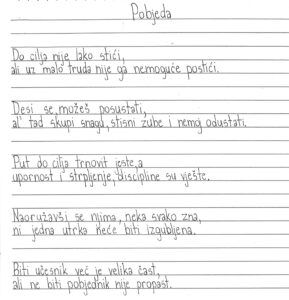 Pobjeda
Do cilja nije lako stići,
ali uz malo truda nije ga nemoguće postići.
Desi se, možeš posustati,
al' tad skupi snagu, stisni zube i nemoj odustati.
Put do cilja trnovit jeste, a
upornost i strpljenje, discipline su vješte.
Naoružavši se njima, neka svako zna,
ni jedna utrka neće biti izgubljena.
Biti učesnik već je velika čast,
ali ne biti pobjednik nije propast.